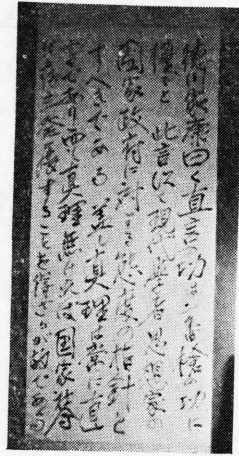 徳川家康曰く直言の功は一番槍の功に
優ると此言以て現代学者思想家の
国家政府に対する態度の指針と
すべきである 蓋し真理は常に直
言であり而して真理無くば国家社會
は存立発展することを得ざるが故である